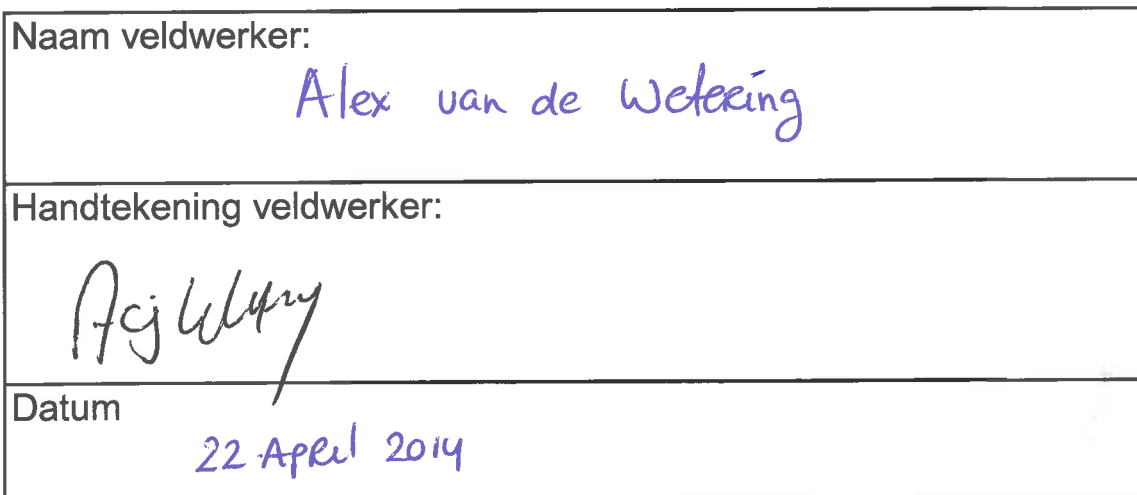 Naam veldwerker:
Alex van de Wetering
Handtekening veldwerker:
Datum
22 April 2014